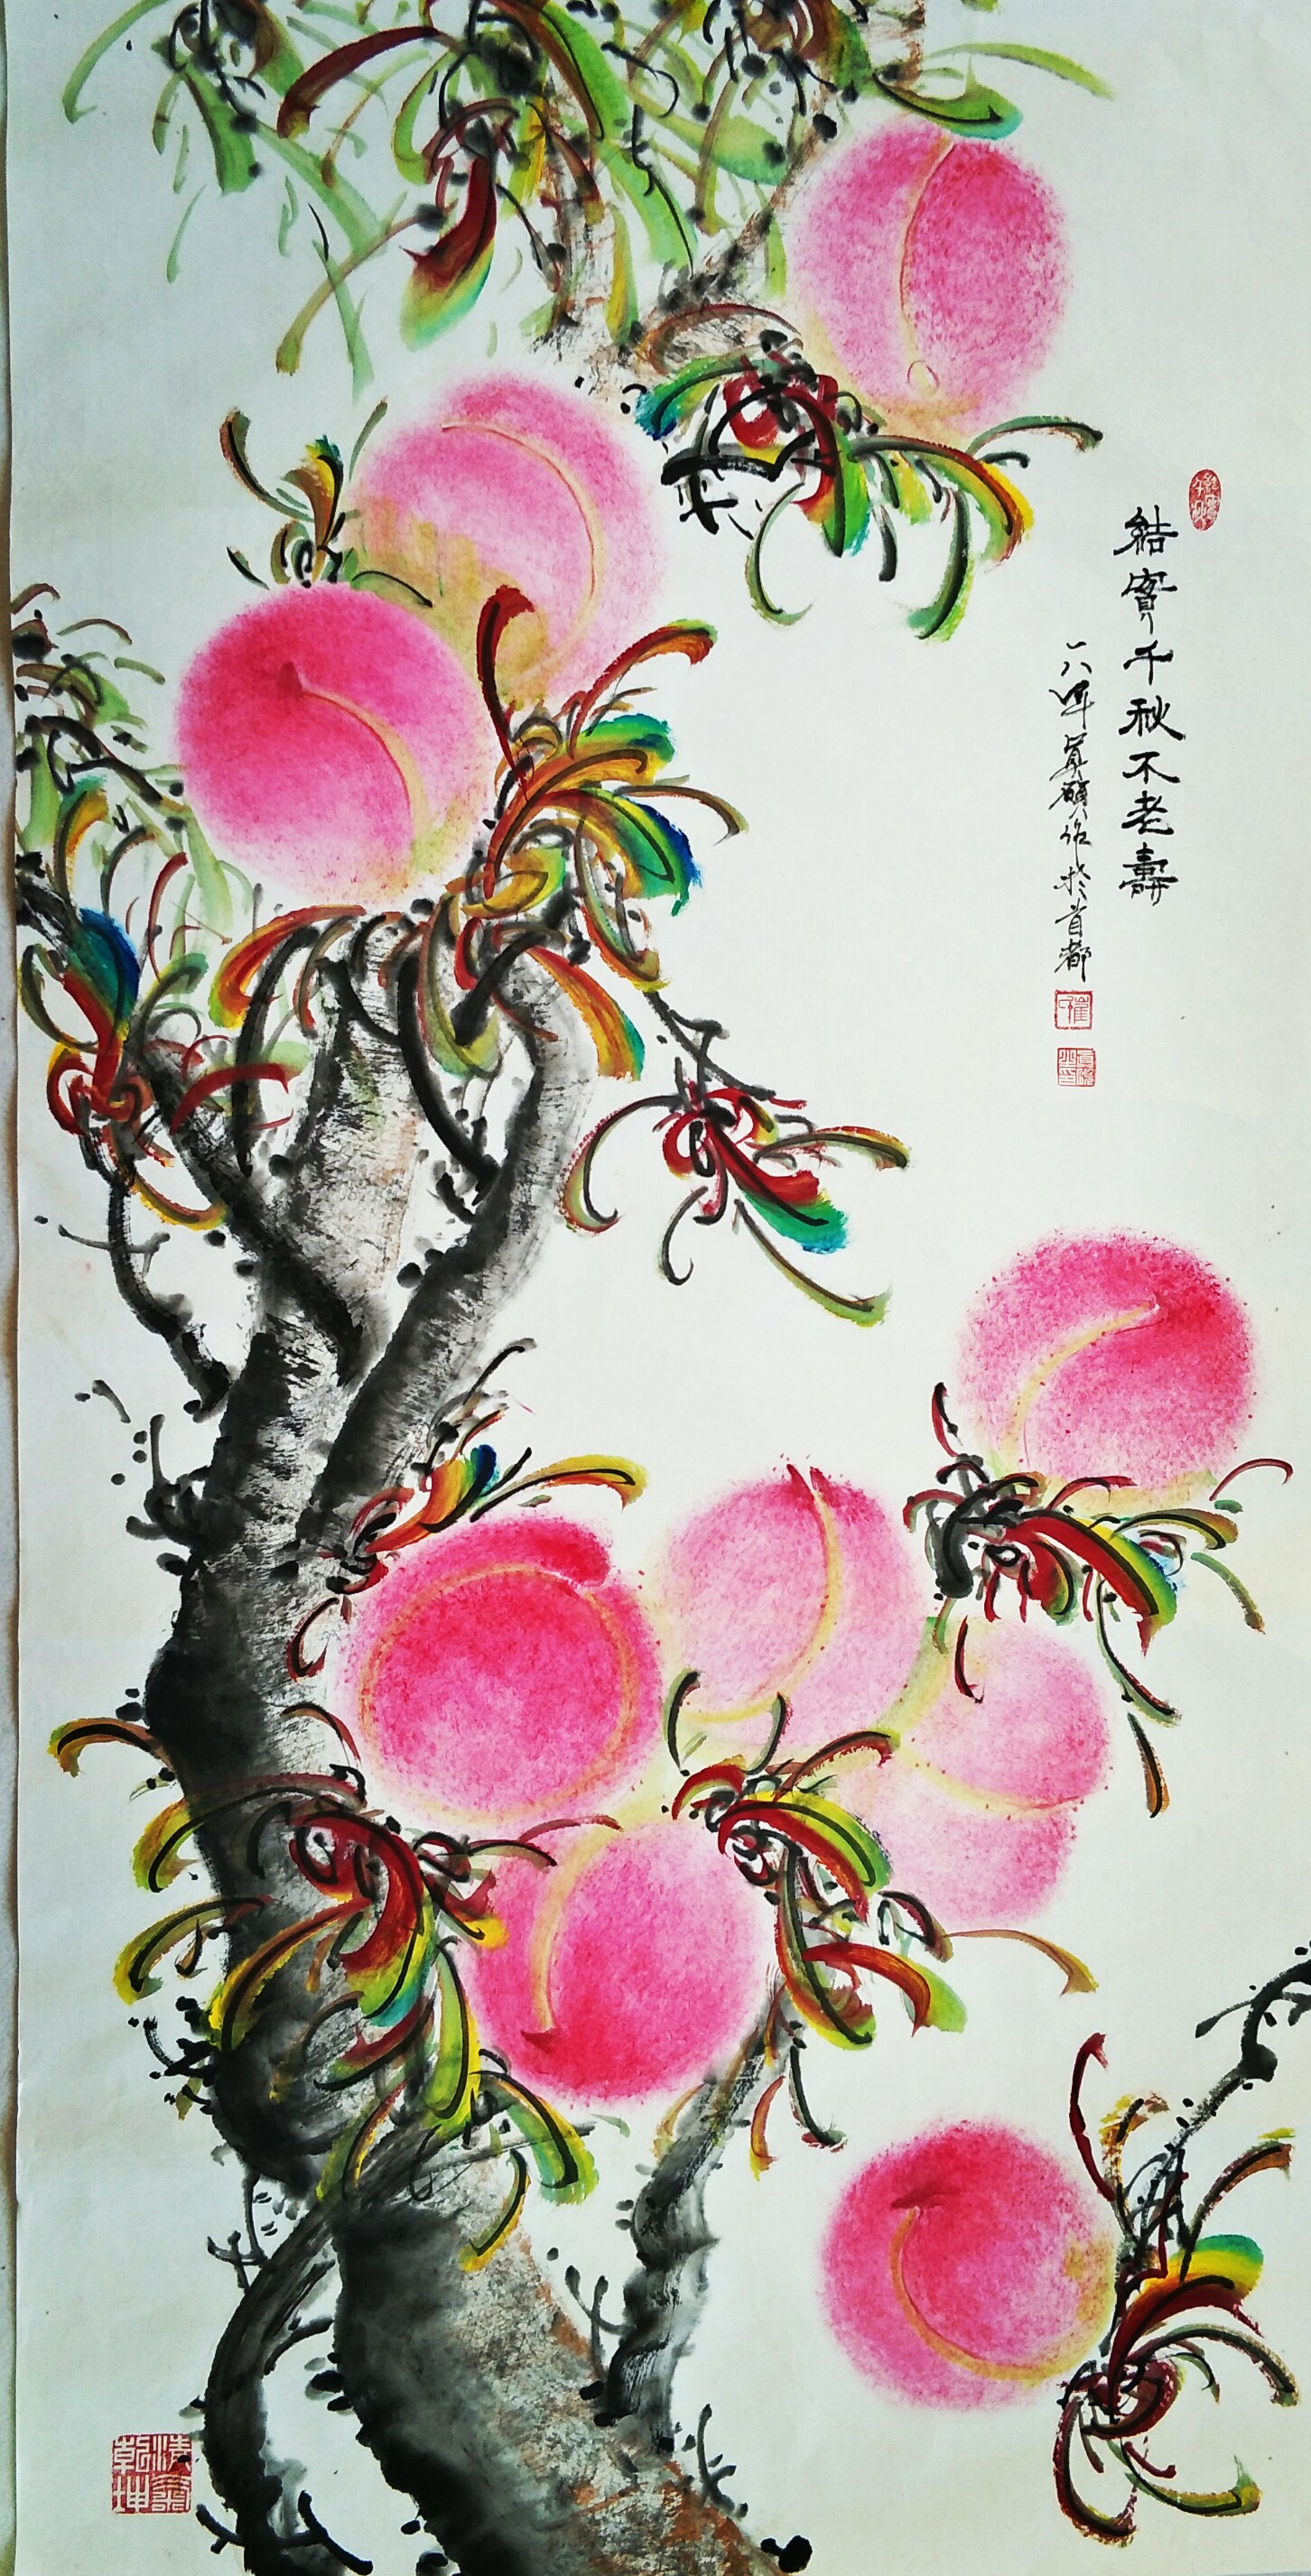 結實千秋不老壽
一八年真碩作於首都
崔
清氣乾坤